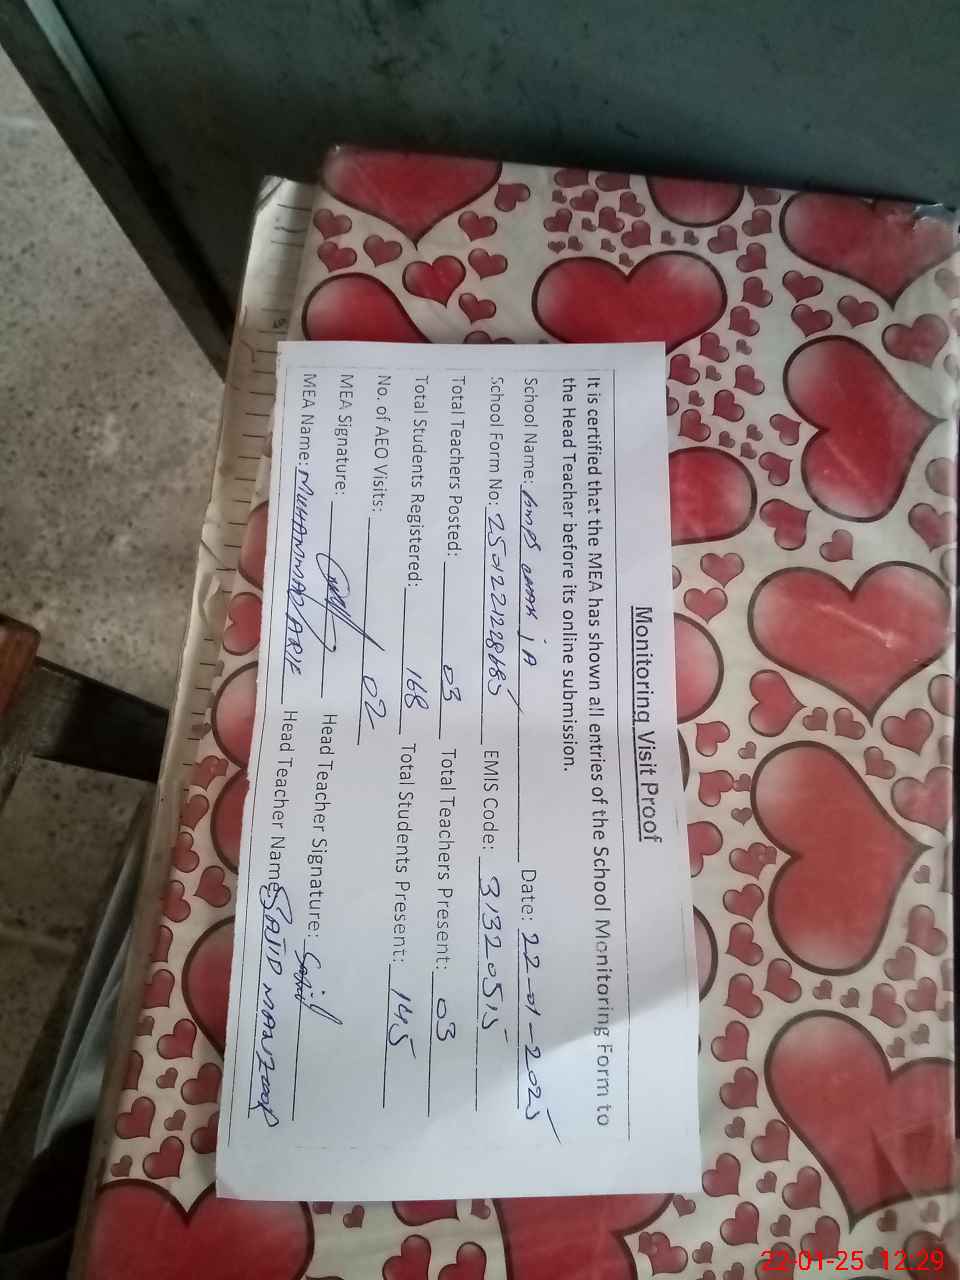 Monitoring Visit Proof
It is certified that the MEA has shown all entries of the School Monitoring Form to
the Head Teacher before its online submission.
School Name: Date: 22-01-2025
School Form No: EMIS Code: 31320515
Total Teachers Posted: 03 Total Teachers Present: 03
Total Students Registered: 168 Total Students Present: 145
No. of AEO Visits: 02
MEA Signature: Head Teacher Signature: Sajid
MEA Name: MUHAMMAD ARIF Head Teacher Name: SAJID MANZOOR
22-01-25 12:29